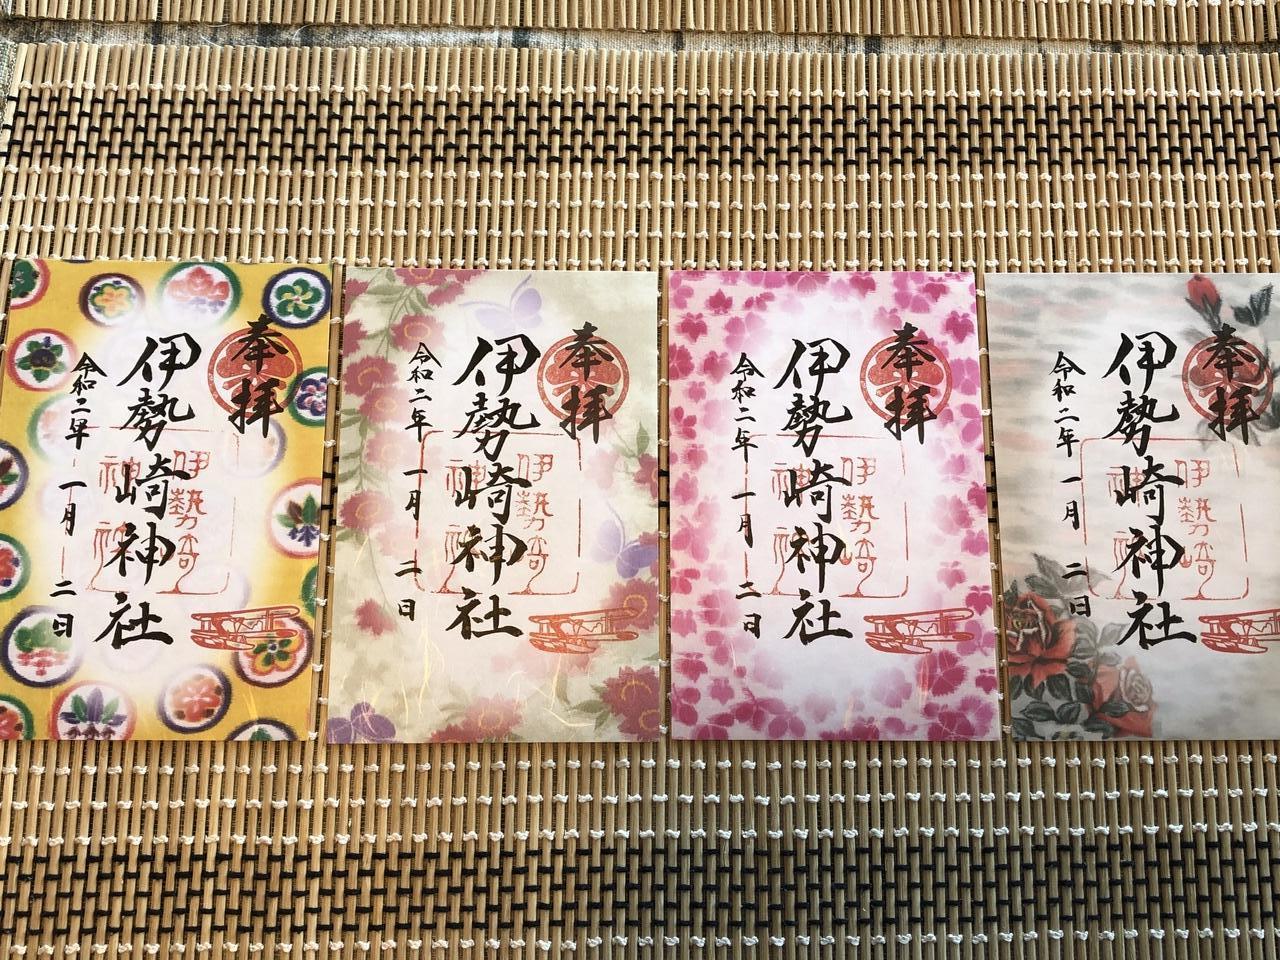 奉拝
伊勢崎神社
令和二年 一月 二日
伊勢崎
神社
奉拝
伊勢崎神社
令和二年 一月 二日
伊勢崎
神社
奉拝
伊勢崎神社
令和二年 一月 二日
伊勢崎
神社
奉拝
伊勢崎神社
令和二年 一月 二日
伊勢崎
神社